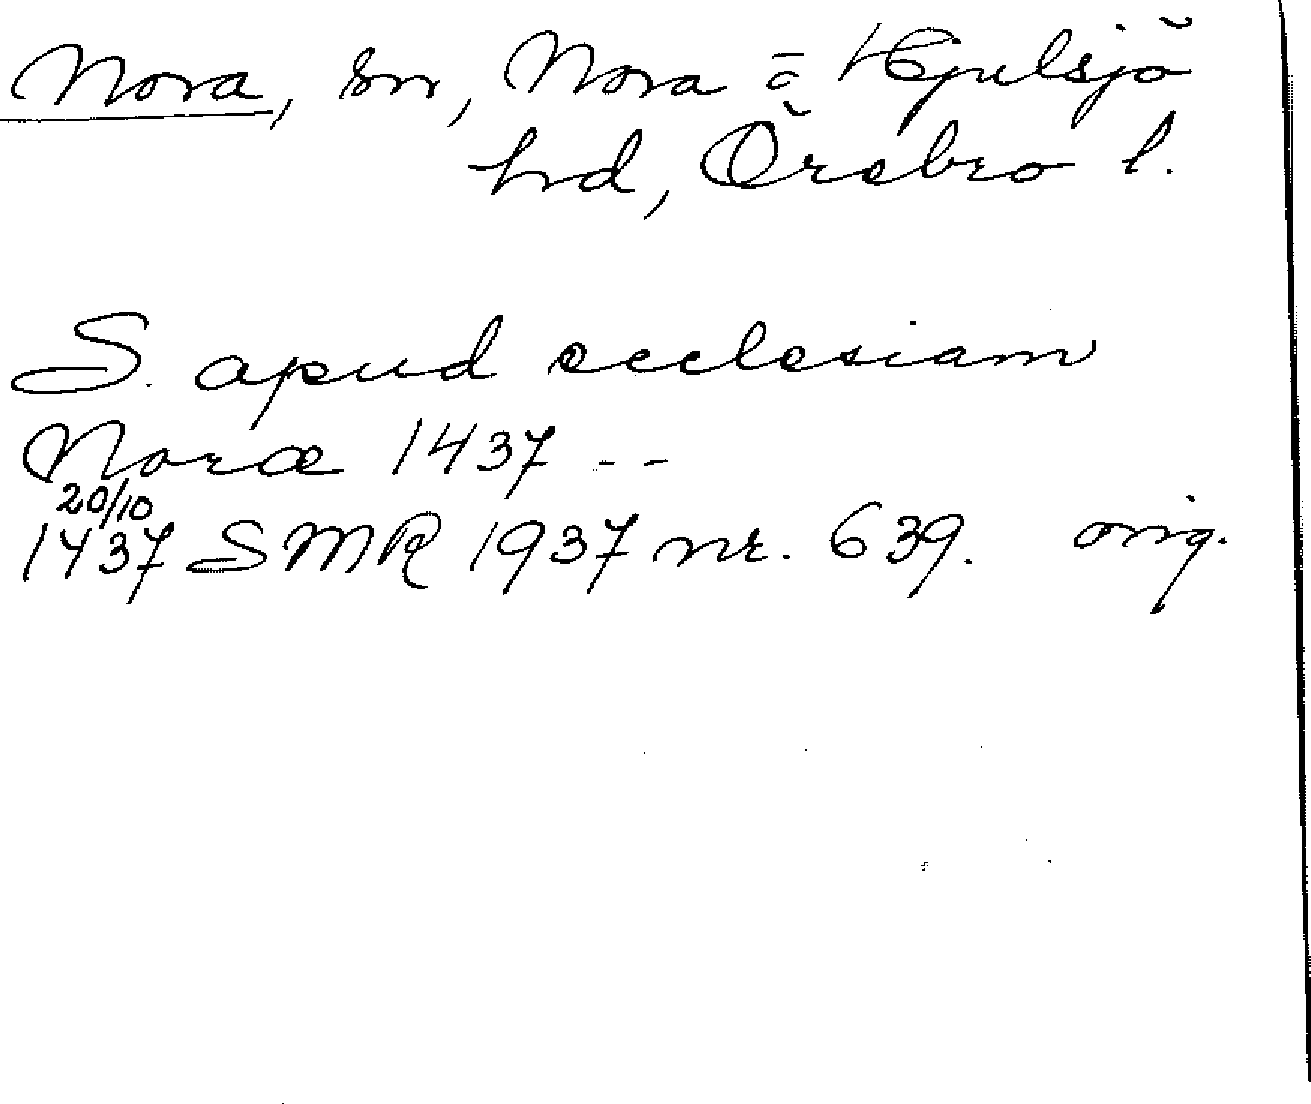 Nora, sn, Nora o Hjulsjö
hd, Örebro l.
S. apud ecclesiam
Noræ 1437 --
20/10
1437 SMR 1937 nr. 639. orig.